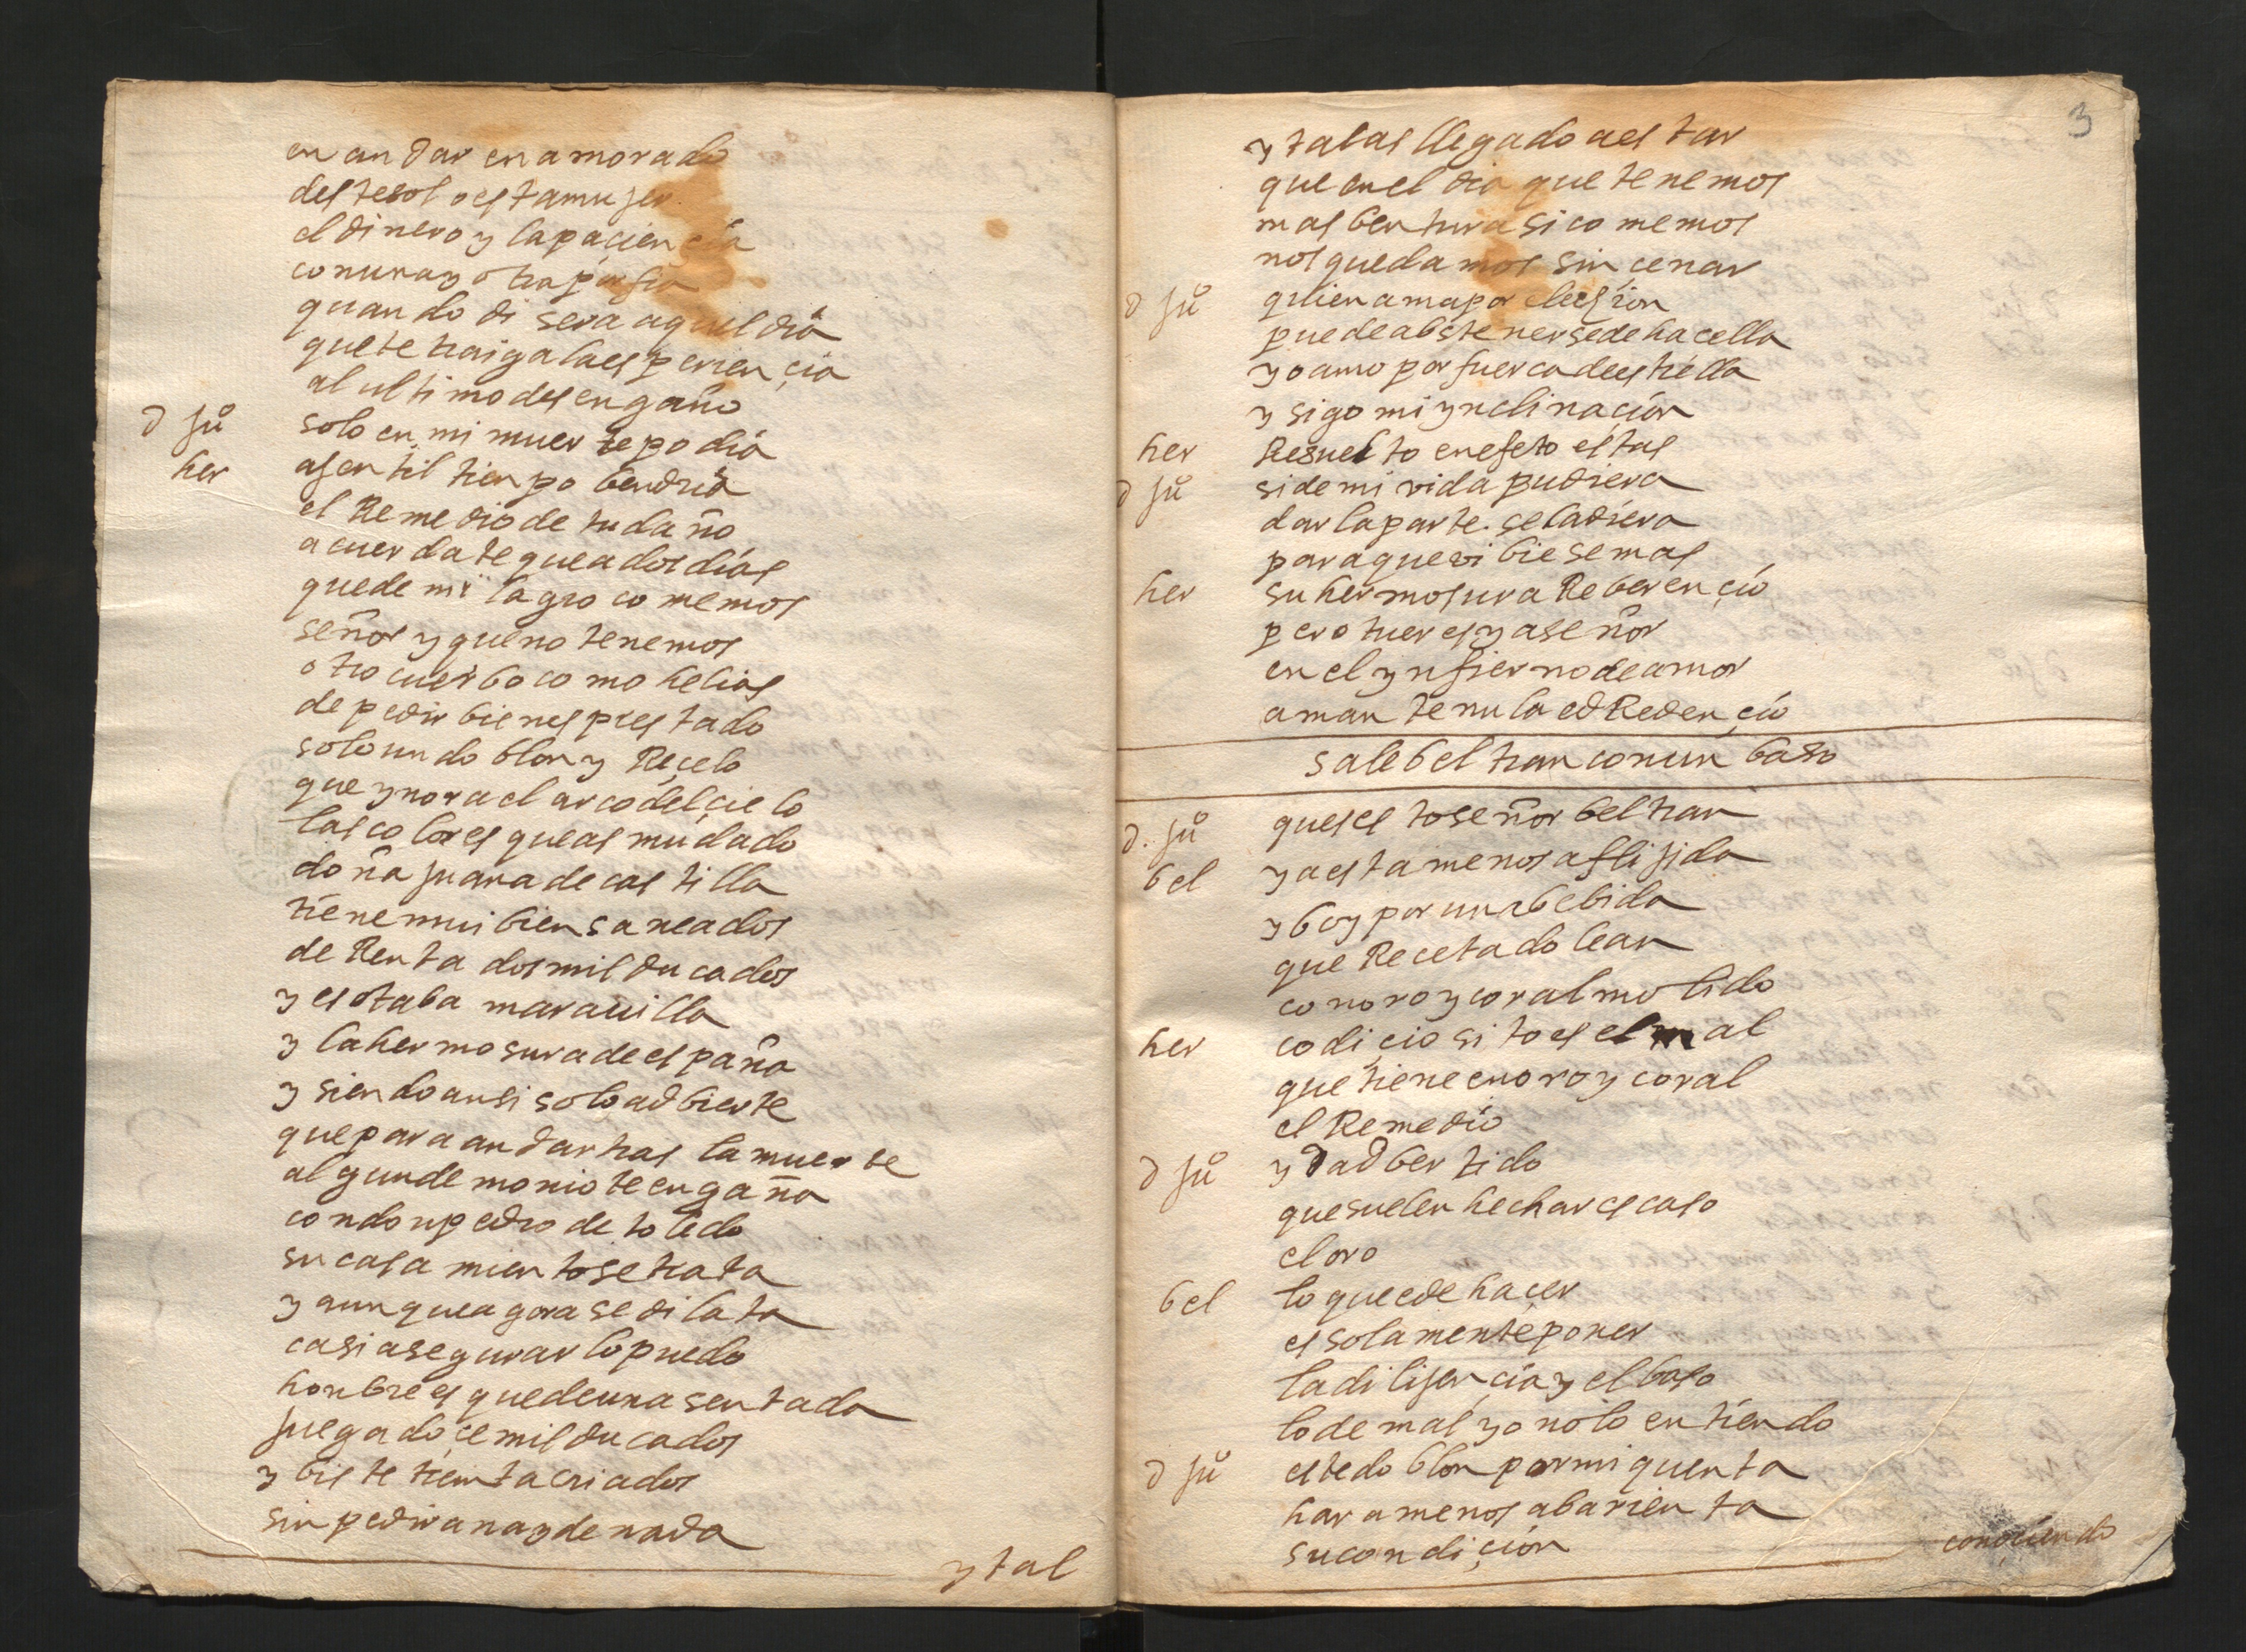 en andar enamorado
deste sol o esta mujer
el dinero y la paçiençia
con una y otra porfia
quando di sera aquel dia
que te traiga la espiriençia
al ultimo desengaño
d Juº solo en mi muerte podia
her a jentil tienpo bendria
el Remedio de tu daño
acuerdate que a dos dias
que de milagro comemos
señor y que no tenemos
otro cuerbo como helias
de pedir bienes prestado
solo un doblon y Reçelo
que ynora el arco del çielo
las colores que as mudado
doña juana de castilla
tiene mui bien saneados
de Renta dos mil ducados
y es otaba marauilla
y la hermosura de españa
y siendo ansi solo adbierte
que para andar tras la muerte
algun demonio te engaña
con don pedro de toledo
su casamiento se trata
y aunque agora se dilata
casi asegurarlo puedo
honbre es que de una sentada
juega doçe mil ducados
y biste treinta criados
sin pedir a nayde nada
y tal
3
y tal as llegado a estar
que en el dia que tenemos
mas bentura si comemos
nos quedamos sin çenar
d Juº quien ama por elesçion
puede abstenerse de hacella
yo amo por fuerca de estrella
y sigo mi ynclinaçion
her Resuelto en efeto estas
d Juº si de mi vida pudiera
dar la parte se la diera
para que vibiese mas
her su hermosura Reberençio
pero tu eres ya señor
en el ynfierno de amor
amante nula ed Redençio
sale beltran con un baso
d. Juº ques esto señor beltran
bel ya esta menos aflijida
y boy por una bebida
que Recetado lean
con oro y coral molido
her codiçiosito es el mal
que tiene en oro y coral
el Remedio
d Juº yd adbertido
que suelen hechar escaso
el oro
bel lo que e de haçer
es solamente poner
la dilijençia y el baso
lo de mas yo no lo entiendo
d Juº este doblon por mi quenta
hara menos abarienta
su condiçion
conoçiendo